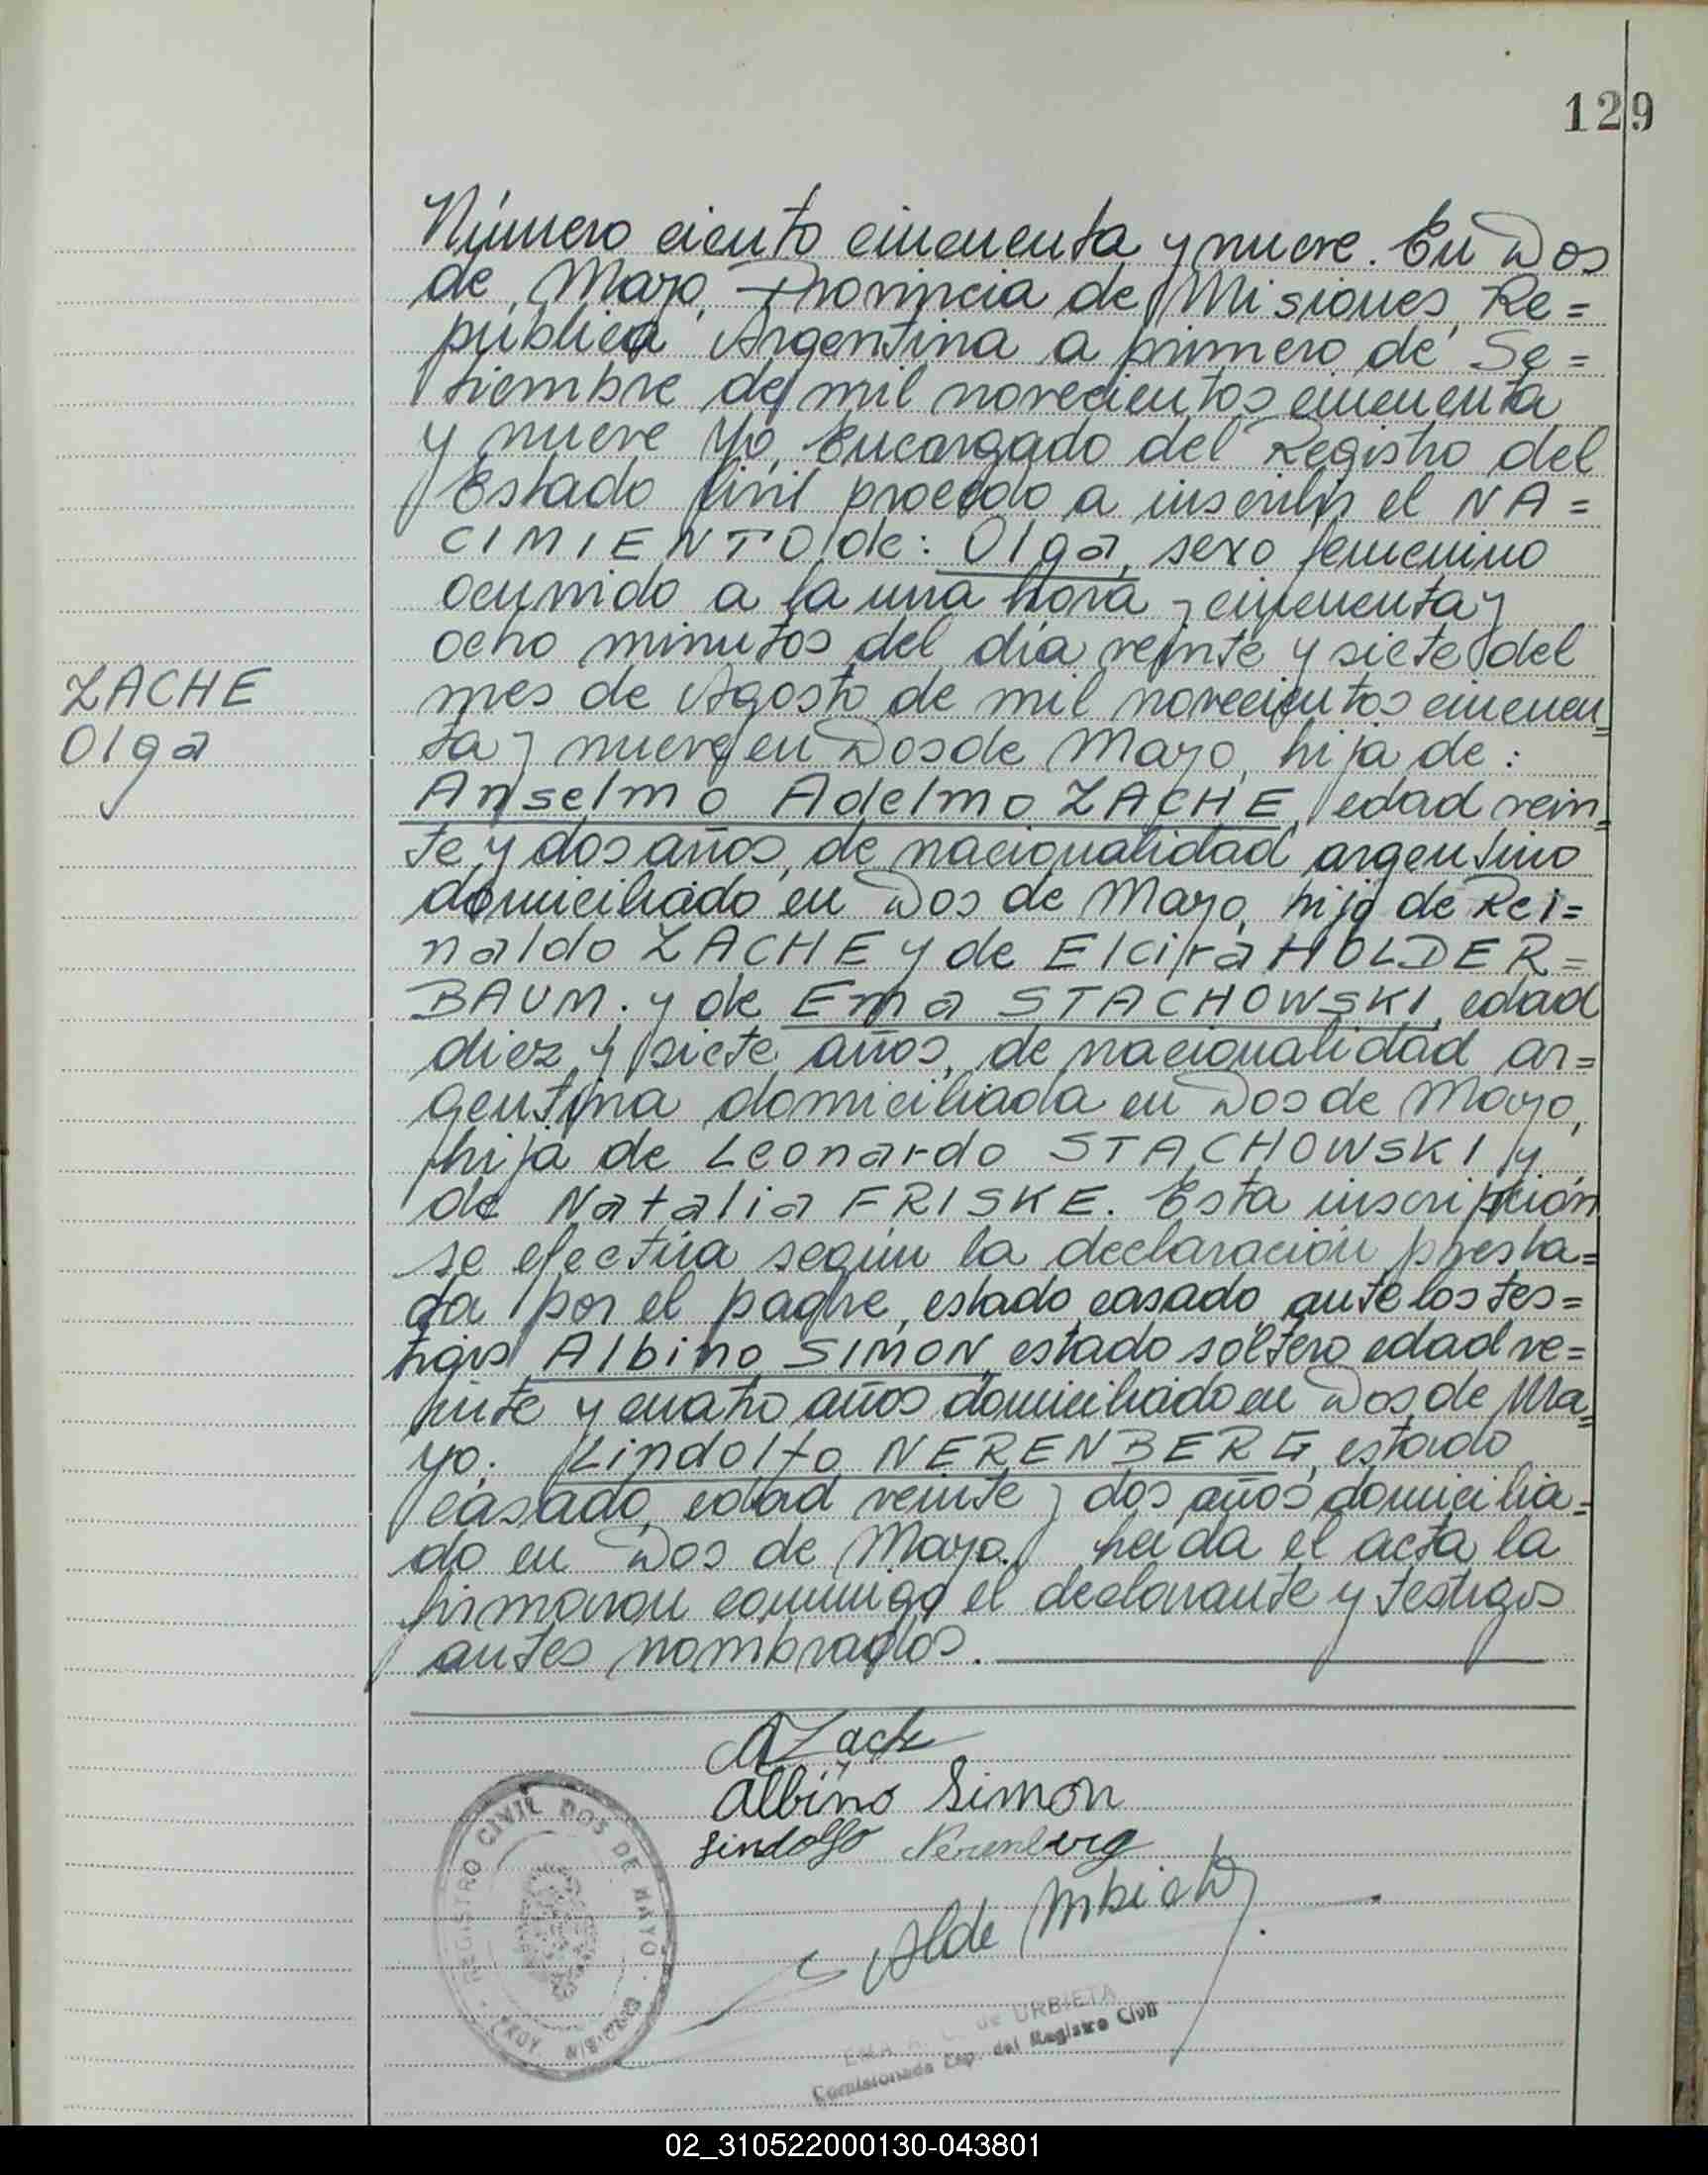 129
Número ciento cincuenta y nueve. En Dos
de Mayo, Provincia de Misiones, Re=
pública Argentina a primero de Se=
tiembre de mil novecientos cincuenta
y nueve Yo, Encargado del Registro del
Estado Civil procedo a inscribir el NA=
CIMIENTO de: Olga, sexo femenino
ocurrido a la una hora y cincuenta y
ocho minutos del día veinte y siete del
ZACHE
Olga
mes de Agosto de mil novecientos cincuen=
ta y nueve en Dos de Mayo, hija de:
Anselmo Adelmo ZACHE, edad vein=
te y dos años, de nacionalidad argentino
domiciliado en Dos de Mayo, hijo de Rei=
naldo ZACHE y de Elcira HOLDER=
BAUM. y de Ema STACHOWSKI, edad
diez y siete años, de nacionalidad ar=
gentina domiciliada en Dos de Mayo,
hija de Leonardo STACHOWSKI y
de Natalia FRISKE. Esta inscripción
se efectúa según la declaración presta=
da por el padre, estado casado, ante los tes=
tigos Albino SIMON, estado soltero, edad ve=
inte y cuatro años domiciliado en Dos de Ma=
yo. Lindolfo NERENBERG, estado
casado, edad veinte y dos años domicilia=
do en Dos de Mayo. Leída el acta la
firmaron conmigo el declarante y testigos
antes nombrados.
AZache
Albino Simon
Lindolfo Nerenberg
REGISTRO CIVIL DOS DE MAYO
MISIONES
de URBIETA
Comisionada Esp. del Registro Civil
02_310522000130-043801